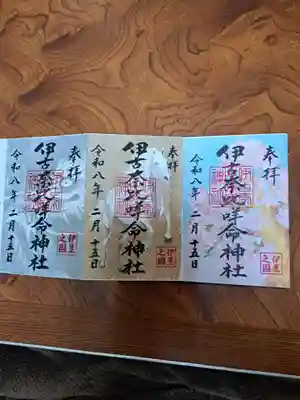 奉拝
伊古奈比咩命神社
令和八年 二月 十五日
伊豆之國
奉拝
伊古奈比咩命神社
令和八年 二月 十五日
奉拝
伊古奈比咩命神社
令和八年 二月 十五日
伊豆之國